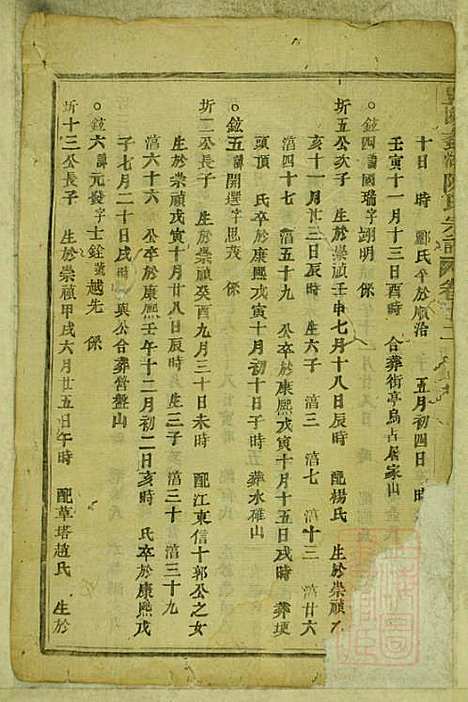 十日 時 酈氏卒於順治 五月初四日
壬寅十一月十三日酉時 合葬街亭烏占居家山
○鉉四諱國瑞字翊明 係
圻五公次子 生於崇禎壬申七月十八日辰時 配楊氏 生於崇禎
亥十一月廿三日辰時 生六子 淯三 淯七 淯十三 淯廿六
淯四十七 淯五十九 公卒於康熙戊寅十月十五日戌時 葬埂
頭頂 氏卒於康熙戊寅十月初十日子時 葬水碓山
○鉉五諱開選字思茂 係
圻二公長子 生於崇禎癸酉九月三十日未時 配江東信十郭公之女
生於崇禎戊寅十月廿八日辰時 生三子 淯三十 淯三十九
淯六十六 公卒於康熙壬午十二月初二日亥時 氏卒於康熙戊
子七月二十日戌時 與公合葬營盤山
○鉉六諱元發字士銓號越先 係
圻十三公長子 生於崇禎甲戌六月廿五日午時 配草塔趙氏 生於